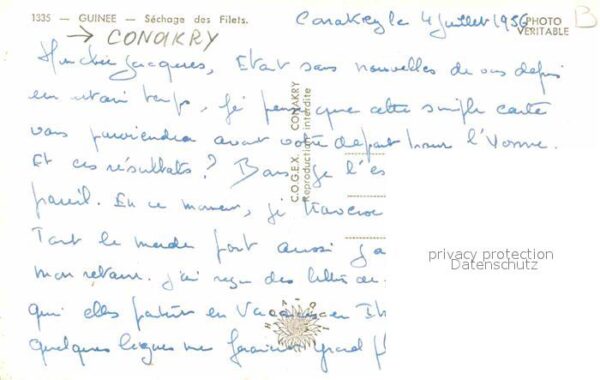 1335 - GUINEE - Séchage des Filets.
→ CONAKRY
Conakry le 4 juillet 1956
PHOTO
VERITABLE
B
Mon cher Jacques, Etant sans nouvelles de vous depuis
un certain temps, je pense que cette simple carte
vous parviendra avant votre départ pour l'Yonne.
Et ces résultats ?
pareil. En ce moment, je traverse
Tout le monde
mon retour. j'ai reçu des lettres de
qui elles partent en Vacances en
quelques lignes me feraient grand
C.O.G.E.X. CONAKRY
Reproduction interdite
privacy protection
Datenschutz